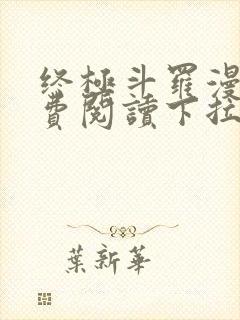 终極斗羅漫
費閱讀下拉
葉新華